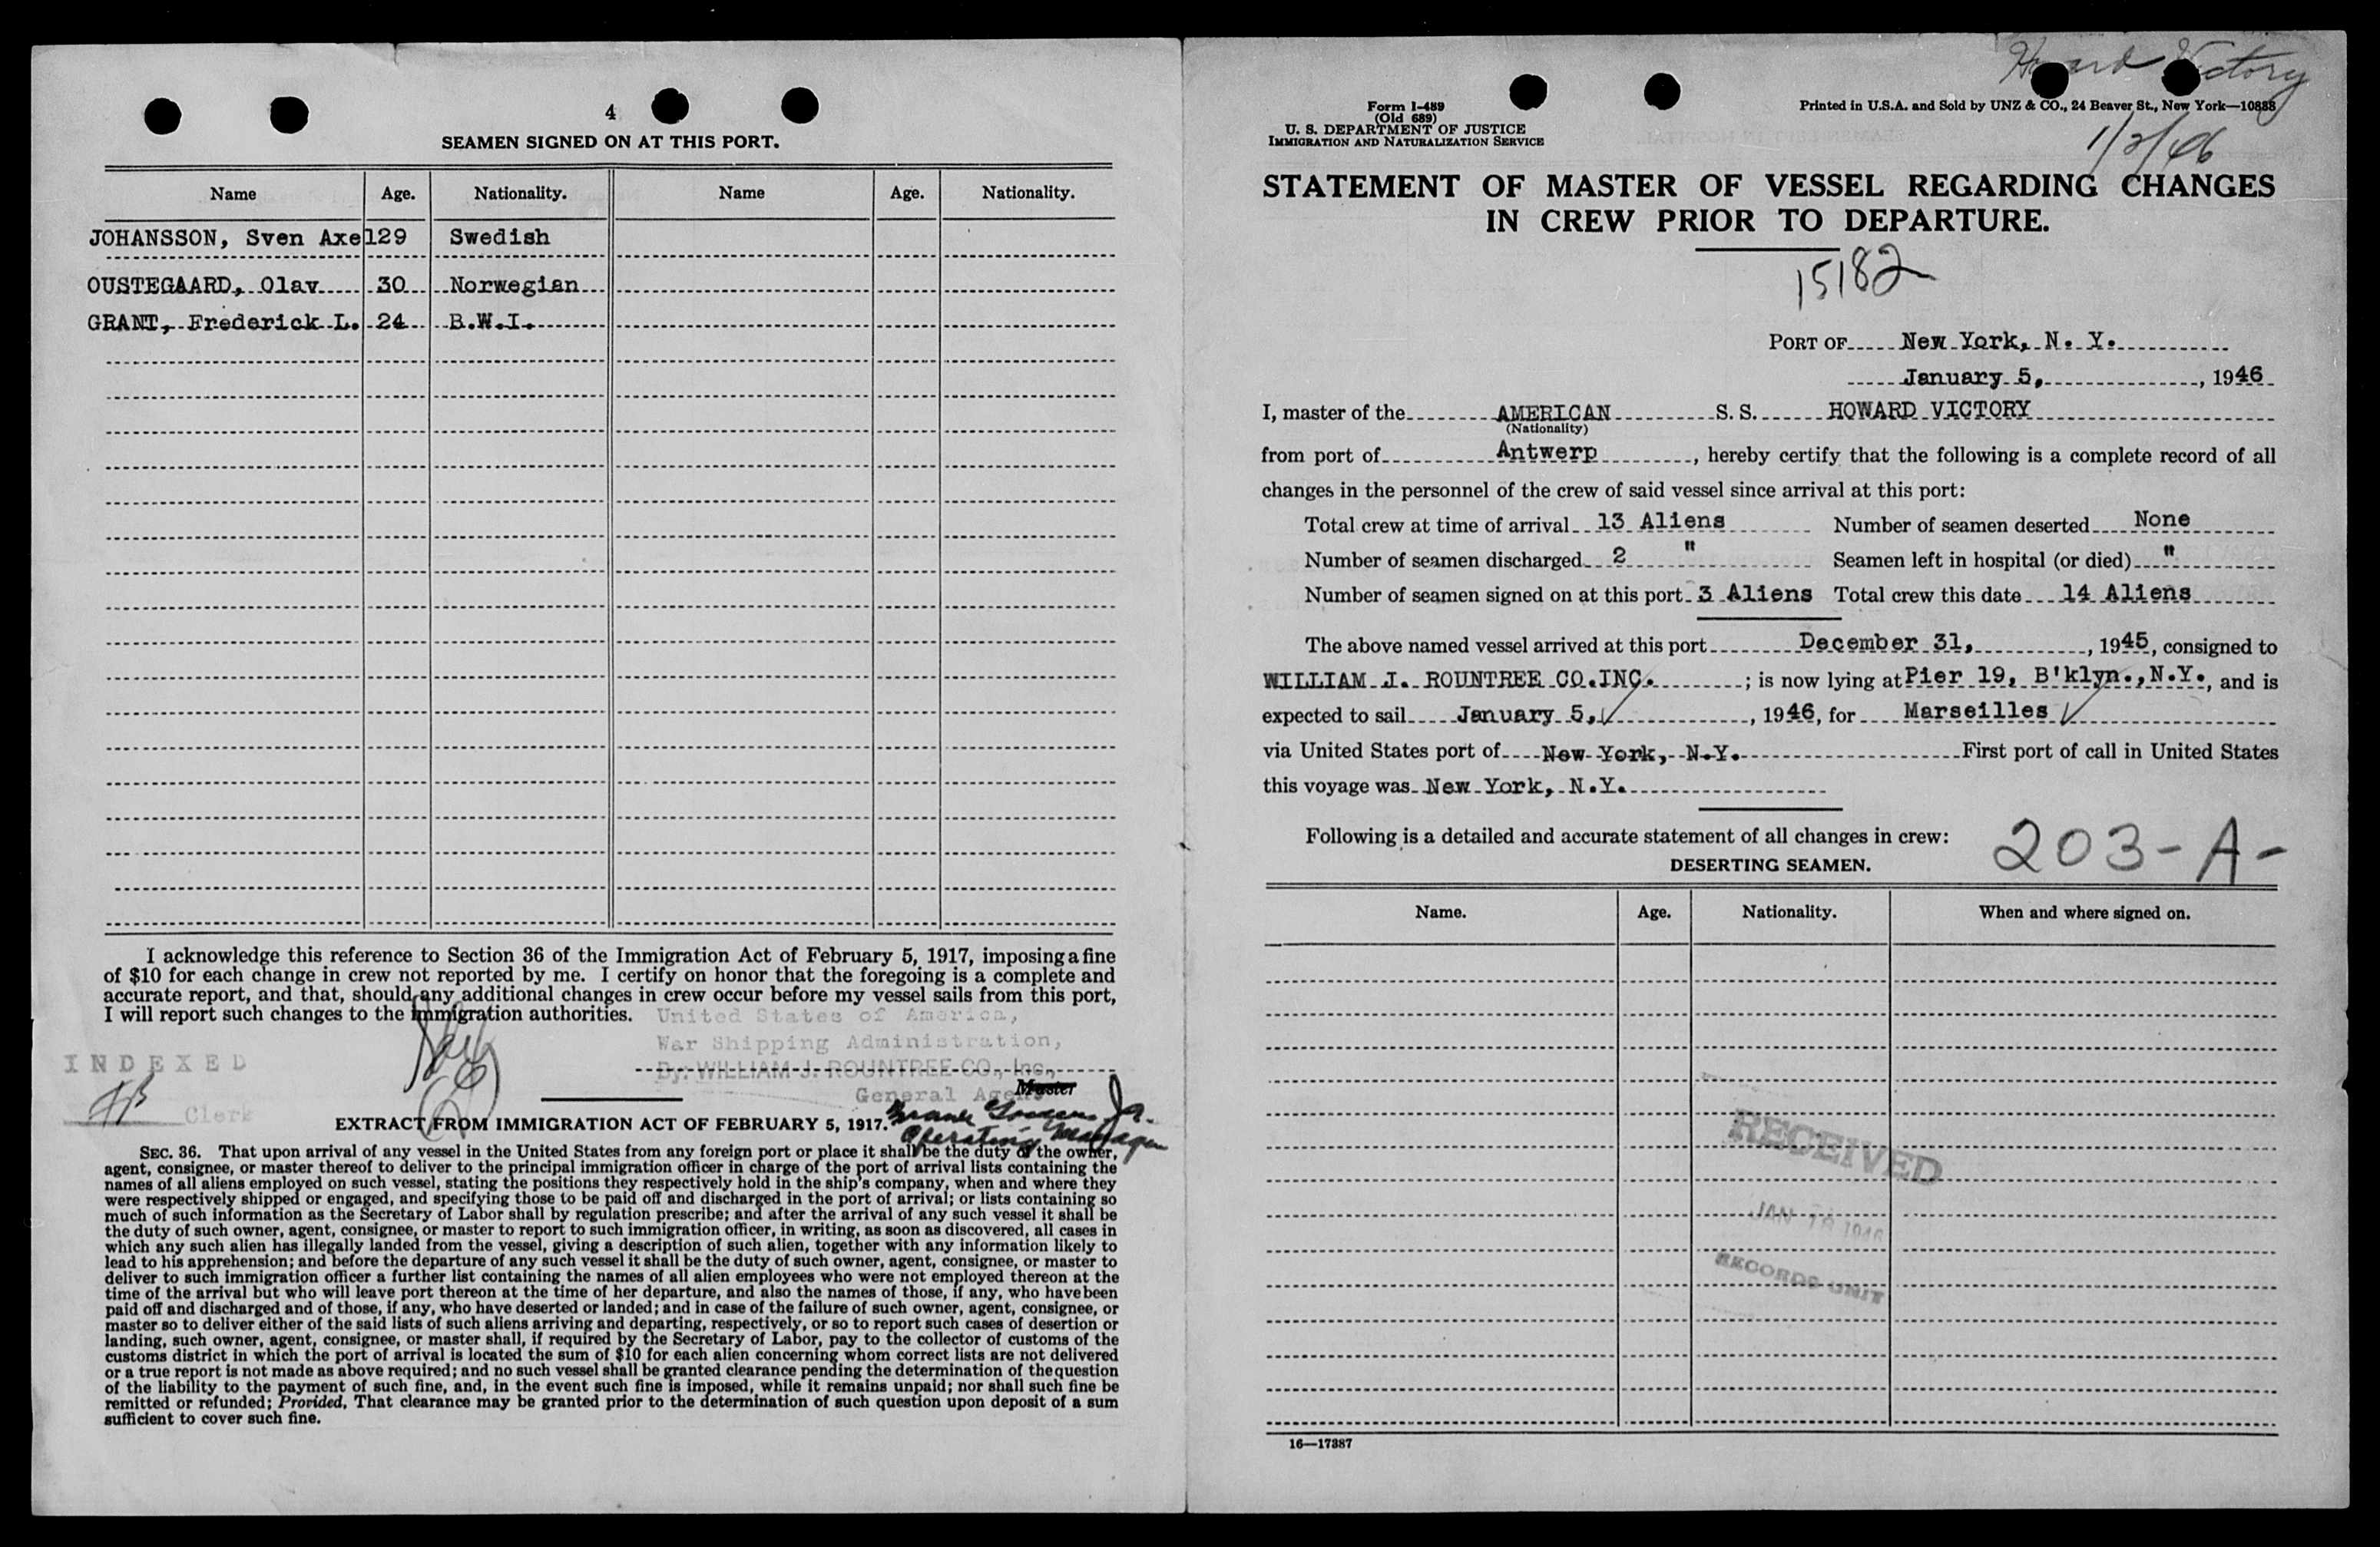 4
SEAMEN SIGNED ON AT THIS PORT.
Name Age. Nationality. Name Age. Nationality.
JOHANSSON, Sven Axel 29 Swedish
OUSTEGAARD, Olav 30 Norwegian
GRANT, Frederick L. 24 B.W.I.
I acknowledge this reference to Section 36 of the Immigration Act of February 5, 1917, imposing a fine
of $10 for each change in crew not reported by me. I certify on honor that the foregoing is a complete and
accurate report, and that, should any additional changes in crew occur before my vessel sails from this port,
I will report such changes to the immigration authorities.
United States of America,
War Shipping Administration,
By: WILLIAM J. ROUNTREE CO., Inc.,
General Agent
Master
Jr.
Operating Manager
INDEXED
Clerk
EXTRACT FROM IMMIGRATION ACT OF FEBRUARY 5, 1917.
SEC. 36. That upon arrival of any vessel in the United States from any foreign port or place it shall be the duty of the owner,
agent, consignee, or master thereof to deliver to the principal immigration officer in charge of the port of arrival lists containing the
names of all aliens employed on such vessel, stating the positions they respectively hold in the ship's company, when and where they
were respectively shipped or engaged, and specifying those to be paid off and discharged in the port of arrival; or lists containing so
much of such information as the Secretary of Labor shall by regulation prescribe; and after the arrival of any such vessel it shall be
the duty of such owner, agent, consignee, or master to report to such immigration officer, in writing, as soon as discovered, all cases in
which any such alien has illegally landed from the vessel, giving a description of such alien, together with any information likely to
lead to his apprehension; and before the departure of any such vessel it shall be the duty of such owner, agent, consignee, or master to
deliver to such immigration officer a further list containing the names of all alien employees who were not employed thereon at the
time of the arrival but who will leave port thereon at the time of her departure, and also the names of those, if any, who have been
paid off and discharged and of those, if any, who have deserted or landed; and in case of the failure of such owner, agent, consignee, or
master so to deliver either of the said lists of such aliens arriving and departing, respectively, or so to report such cases of desertion or
landing, such owner, agent, consignee, or master shall, if required by the Secretary of Labor, pay to the collector of customs of the
customs district in which the port of arrival is located the sum of $10 for each alien concerning whom correct lists are not delivered
or a true report is not made as above required; and no such vessel shall be granted clearance pending the determination of the question
of the liability to the payment of such fine, and, in the event such fine is imposed, while it remains unpaid; nor shall such fine be
remitted or refunded; Provided, That clearance may be granted prior to the determination of such question upon deposit of a sum
sufficient to cover such fine.
Howard Victory
Form I-489
(Old 689)
U. S. DEPARTMENT OF JUSTICE
IMMIGRATION AND NATURALIZATION SERVICE
Printed in U.S.A. and Sold by UNZ & CO., 24 Beaver St., New York—10888
STATEMENT OF MASTER OF VESSEL REGARDING CHANGES
IN CREW PRIOR TO DEPARTURE.
15182
PORT OF New York, N. Y.
January 5, , 1946
I, master of the AMERICAN S. S. HOWARD VICTORY
(Nationality)
from port of Antwerp , hereby certify that the following is a complete record of all
changes in the personnel of the crew of said vessel since arrival at this port:
Total crew at time of arrival 13 Aliens Number of seamen deserted None
Number of seamen discharged 2 " Seamen left in hospital (or died) "
Number of seamen signed on at this port 3 Aliens Total crew this date 14 Aliens
The above named vessel arrived at this port December 31, , 1945, consigned to
WILLIAM J. ROUNTREE CO.INC. ; is now lying at Pier 19, B'klyn.,N.Y., and is
expected to sail January 5, , 1946, for Marseilles
via United States port of New York, N.Y. First port of call in United States
this voyage was New York, N.Y.
Following is a detailed and accurate statement of all changes in crew:
203-A-
DESERTING SEAMEN.
Name. Age. Nationality. When and where signed on.
RECEIVED
JAN 1946
RECORDS UNIT
16—17387